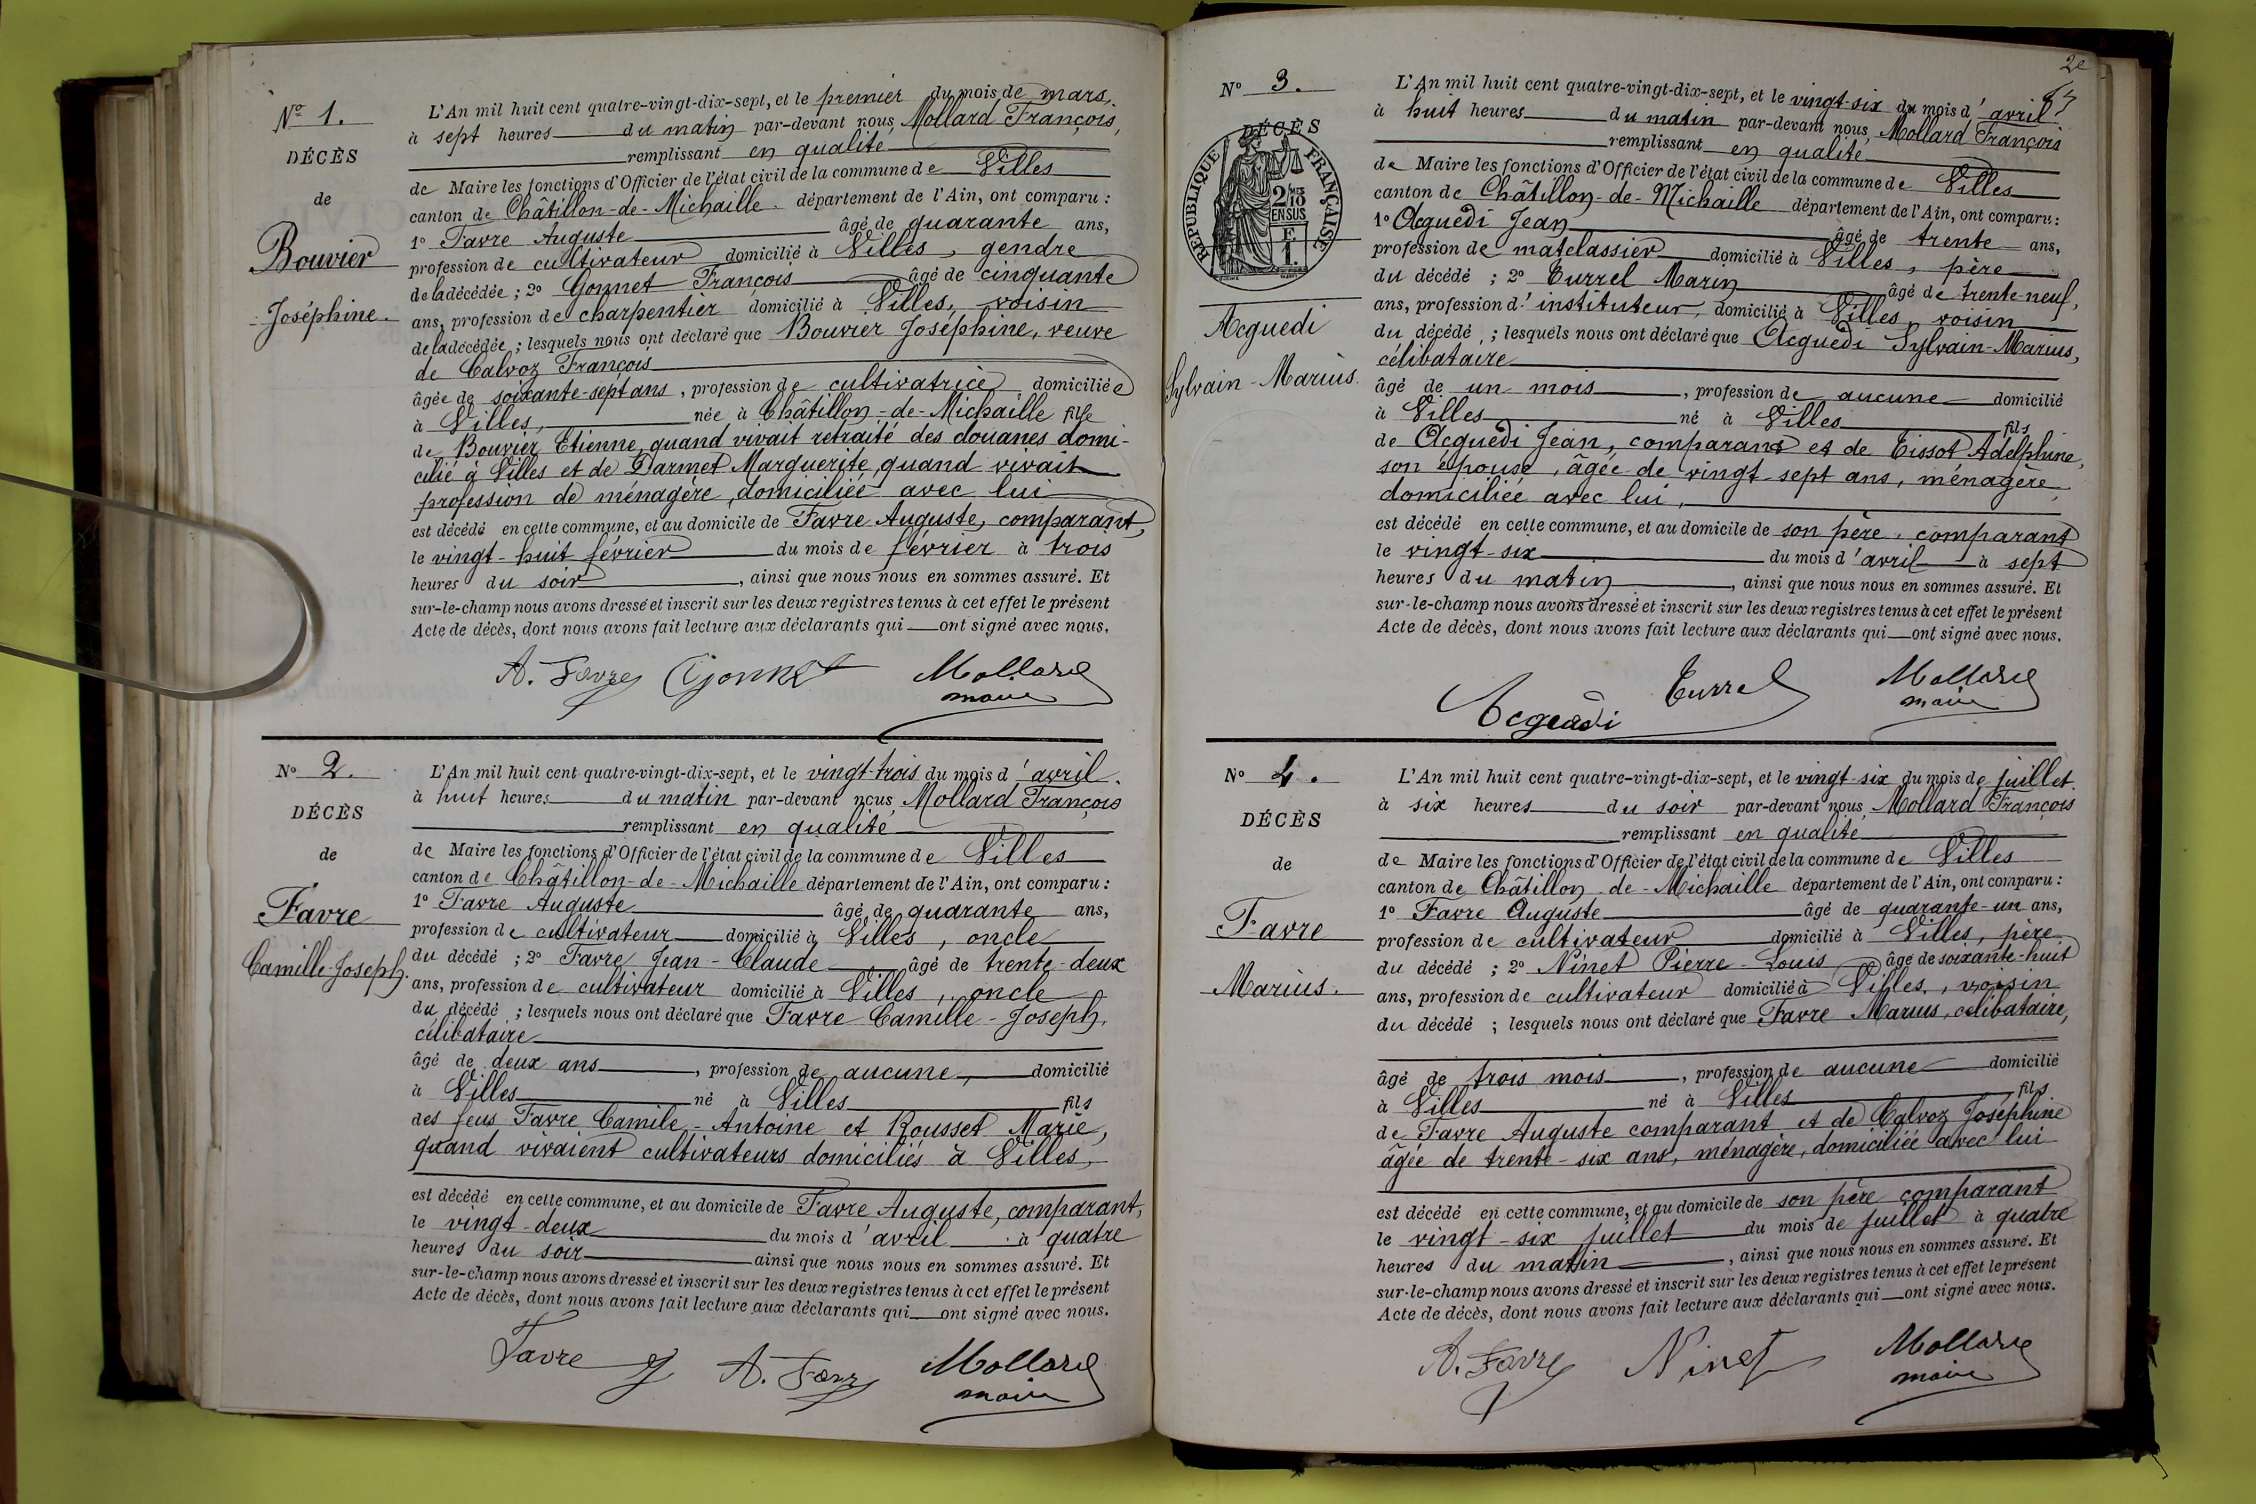 Nº 1.
DÉCÈS
de
Bouvier
Joséphine.
L'An mil huit cent quatre-vingt-dix-sept, et le premier du mois de mars,
à sept heures du matin par-devant nous, Mollard François,
remplissant en qualité
de Maire les fonctions d'Officier de l'état civil de la commune de Villes
canton de Châtillon-de-Michaille. département de l'Ain, ont comparu :
1º Favre Auguste âgé de quarante ans,
profession de cultivateur domicilié à Villes, gendre
de la décédée ; 2º Gonnet François âgé de cinquante
ans, profession de charpentier domicilié à Villes, voisin
de la décédée ; lesquels nous ont déclaré que Bouvier Joséphine, veuve
de Calvoz François
âgée de soixante-sept ans, profession de cultivatrice domiciliée
à Villes, née à Châtillon-de-Michaille fille
de Bouvier Etienne, quand vivait retraité des douanes domi-
cilié à Villes et de Darmet Marguerite, quand vivait
profession de ménagère, domiciliée avec lui
est décédé en cette commune, et au domicile de Favre Auguste, comparant,
le vingt-huit février du mois de février à trois
heures du soir, ainsi que nous nous en sommes assuré. Et
sur-le-champ nous avons dressé et inscrit sur les deux registres tenus à cet effet le présent
Acte de décès, dont nous avons fait lecture aux déclarants qui ont signé avec nous.
A. Favre Gonnet Mollard
maire
Nº 2.
DÉCÈS
de
Favre
Camille-Joseph.
L'An mil huit cent quatre-vingt-dix-sept, et le vingt-trois du mois d'avril.
à huit heures du matin par-devant nous, Mollard François
remplissant en qualité
de Maire les fonctions d'Officier de l'état civil de la commune de Villes
canton de Châtillon-de-Michaille département de l'Ain, ont comparu :
1º Favre Auguste âgé de quarante ans,
profession de cultivateur domicilié à Villes, oncle
du décédé ; 2º Favre Jean-Claude âgé de trente-deux
ans, profession de cultivateur domicilié à Villes, oncle
du décédé ; lesquels nous ont déclaré que Favre Camille-Joseph,
célibataire
âgé de deux ans, profession de aucune, domicilié
à Villes né à Villes fils
des feus Favre Camile-Antoine et Rousset Marie,
quand vivaient cultivateurs domiciliés à Villes,
est décédé en cette commune, et au domicile de Favre Auguste, comparant,
le vingt-deux du mois d'avril à quatre
heures du soir ainsi que nous nous en sommes assuré. Et
sur-le-champ nous avons dressé et inscrit sur les deux registres tenus à cet effet le présent
Acte de décès, dont nous avons fait lecture aux déclarants qui ont signé avec nous.
Favre A. Favre Mollard
maire
2e
Nº 3.
DÉCÈS
RÉPUBLIQUE FRANÇAISE
2/10 EN SUS
1.
Acguedi
Sylvain-Marius.
L'An mil huit cent quatre-vingt-dix-sept, et le vingt-six du mois d'avril
à huit heures du matin par-devant nous, Mollard François
remplissant en qualité
de Maire les fonctions d'Officier de l'état civil de la commune de Villes
canton de Châtillon-de-Michaille département de l'Ain, ont comparu :
1º Acguedi Jean âgé de trente ans,
profession de matelassier domicilié à Villes, père
du décédé ; 2º Turrel Marin âgé de trente-neuf,
ans, profession d'instituteur, domicilié à Villes, voisin
du décédé, ; lesquels nous ont déclaré que Acguedi Sylvain-Marius,
célibataire
âgé de un mois, profession de aucune domicilié
à Villes né à Villes fils
de Acguedi Jean, comparant et de Tissot Adelphine,
son épouse, âgée de vingt-sept ans, ménagère,
domiciliée avec lui,
est décédé en cette commune, et au domicile de son père, comparant
le vingt-six du mois d'avril à sept
heures du matin, ainsi que nous nous en sommes assuré. Et
sur-le-champ nous avons dressé et inscrit sur les deux registres tenus à cet effet le présent
Acte de décès, dont nous avons fait lecture aux déclarants qui ont signé avec nous.
Acguedi Turrel Mollard
maire
Nº 4.
DÉCÈS
de
Favre
Marius.
L'An mil huit cent quatre-vingt-dix-sept, et le vingt-six du mois de juillet.
à six heures du soir par-devant nous, Mollard François
remplissant en qualité
de Maire les fonctions d'Officier de l'état civil de la commune de Villes
canton de Châtillon-de-Michaille département de l'Ain, ont comparu :
1º Favre Auguste âgé de quarante-un ans,
profession de cultivateur domicilié à Villes, père
du décédé ; 2º Ninet Pierre-Louis âgé de soixante-huit
ans, profession de cultivateur domicilié à Villes, voisin
du décédé ; lesquels nous ont déclaré que Favre Marius, célibataire,
âgé de trois mois, profession de aucune domicilié
à Villes né à Villes fils
de Favre Auguste comparant et de Calvoz Joséphine
âgée de trente-six ans, ménagère, domiciliée avec lui
est décédé en cette commune, et au domicile de son père comparant
le vingt-six juillet du mois de juillet à quatre
heures du matin, ainsi que nous nous en sommes assuré. Et
sur-le-champ nous avons dressé et inscrit sur les deux registres tenus à cet effet le présent
Acte de décès, dont nous avons fait lecture aux déclarants qui ont signé avec nous.
A. Favre Ninet Mollard
maire